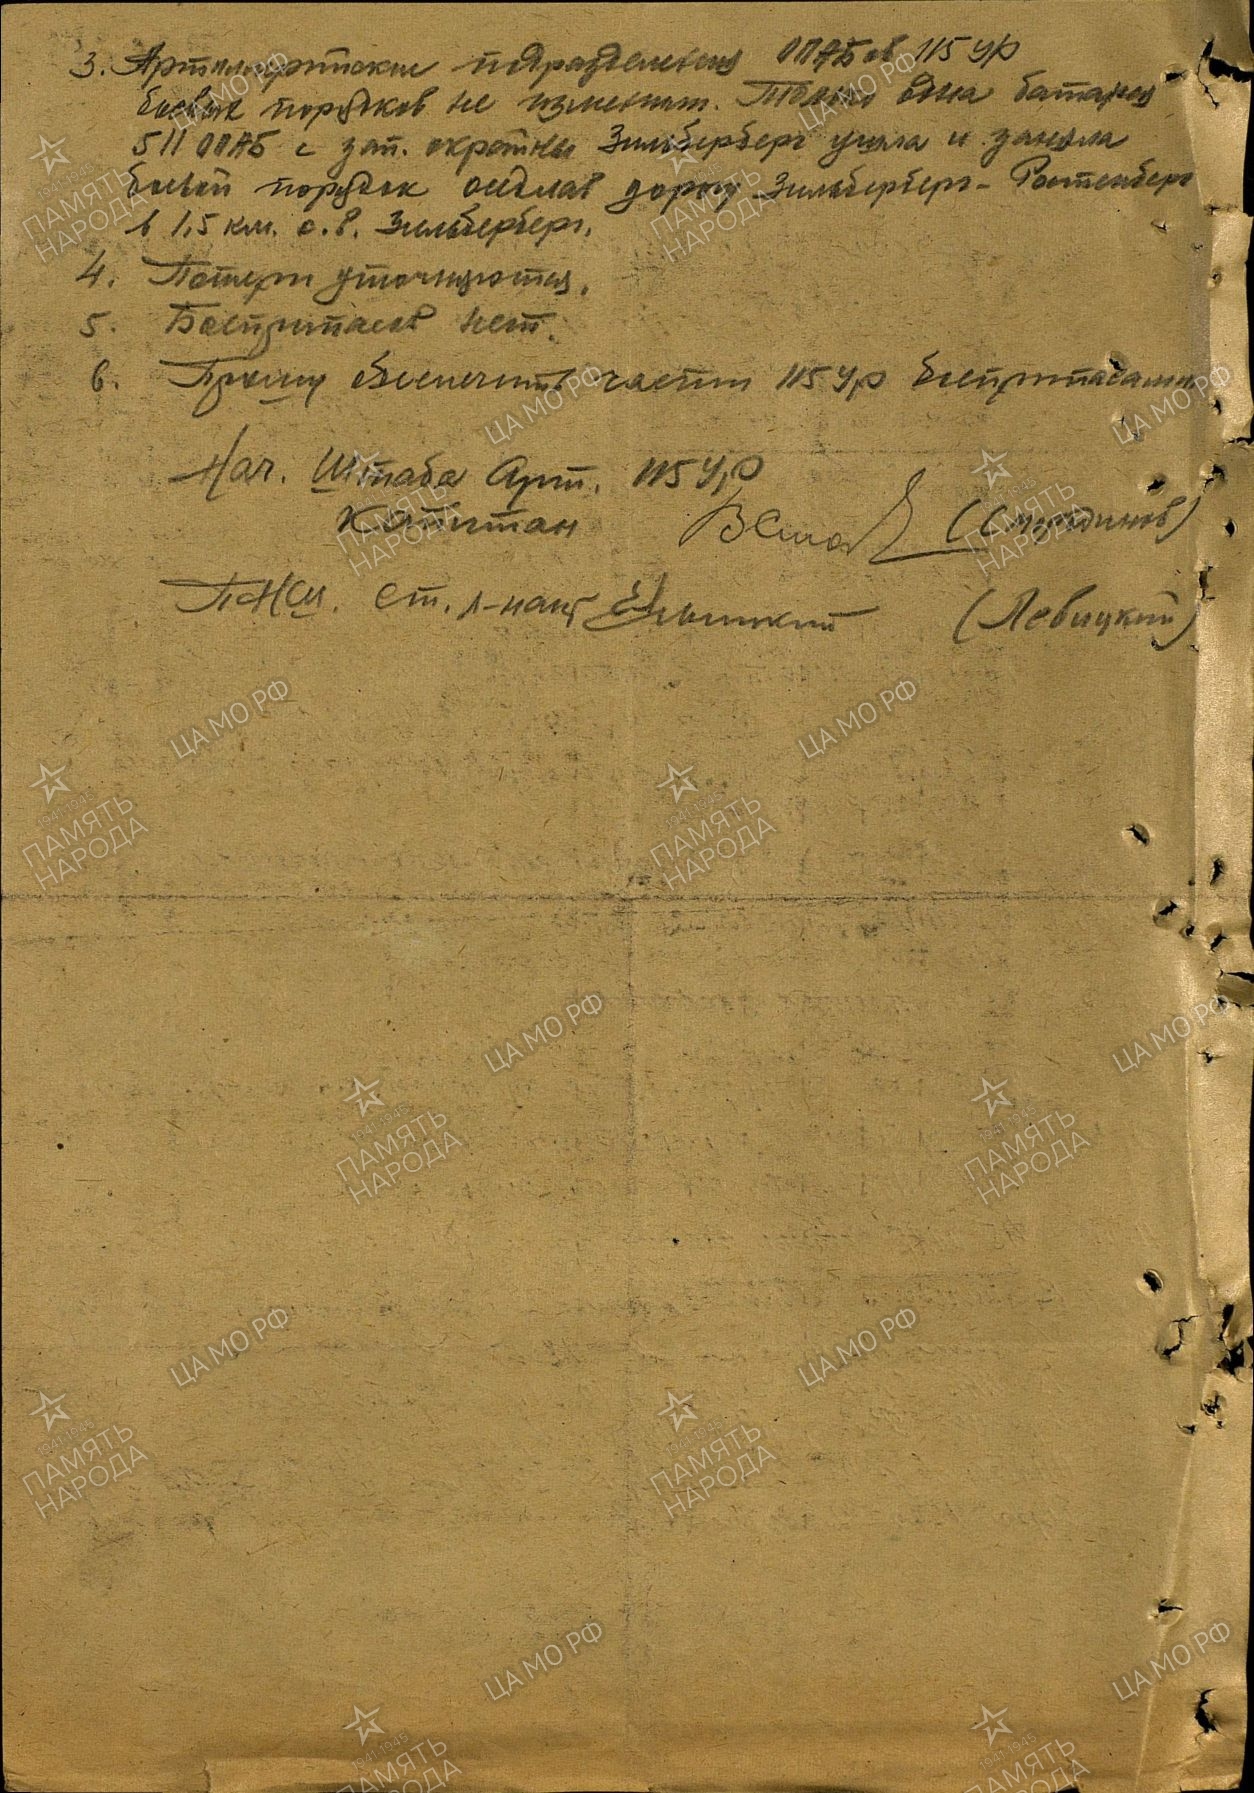 3. Артиллерийские подразделения ОПАБов 115 УР
боевых порядков не изменили. Только одна батарея
511 ОПАБ с зап. окраины Зильберберг ушла и заняла
боевой порядок оседлав дорогу Зильберберг - Ротенберг
в 1,5 км. с.в. Зильберберг.
4. Потери уточняются.
5. Боеприпасов нет.
6. Прошу обеспечить части 115 УР боеприпасами
Нач. Штаба Арт. 115 УР
Капитан
ПНШ. Ст. л-нант (Левицкий)
ЦА МО РФ
ПАМЯТЬ НАРОДА
1941-1945